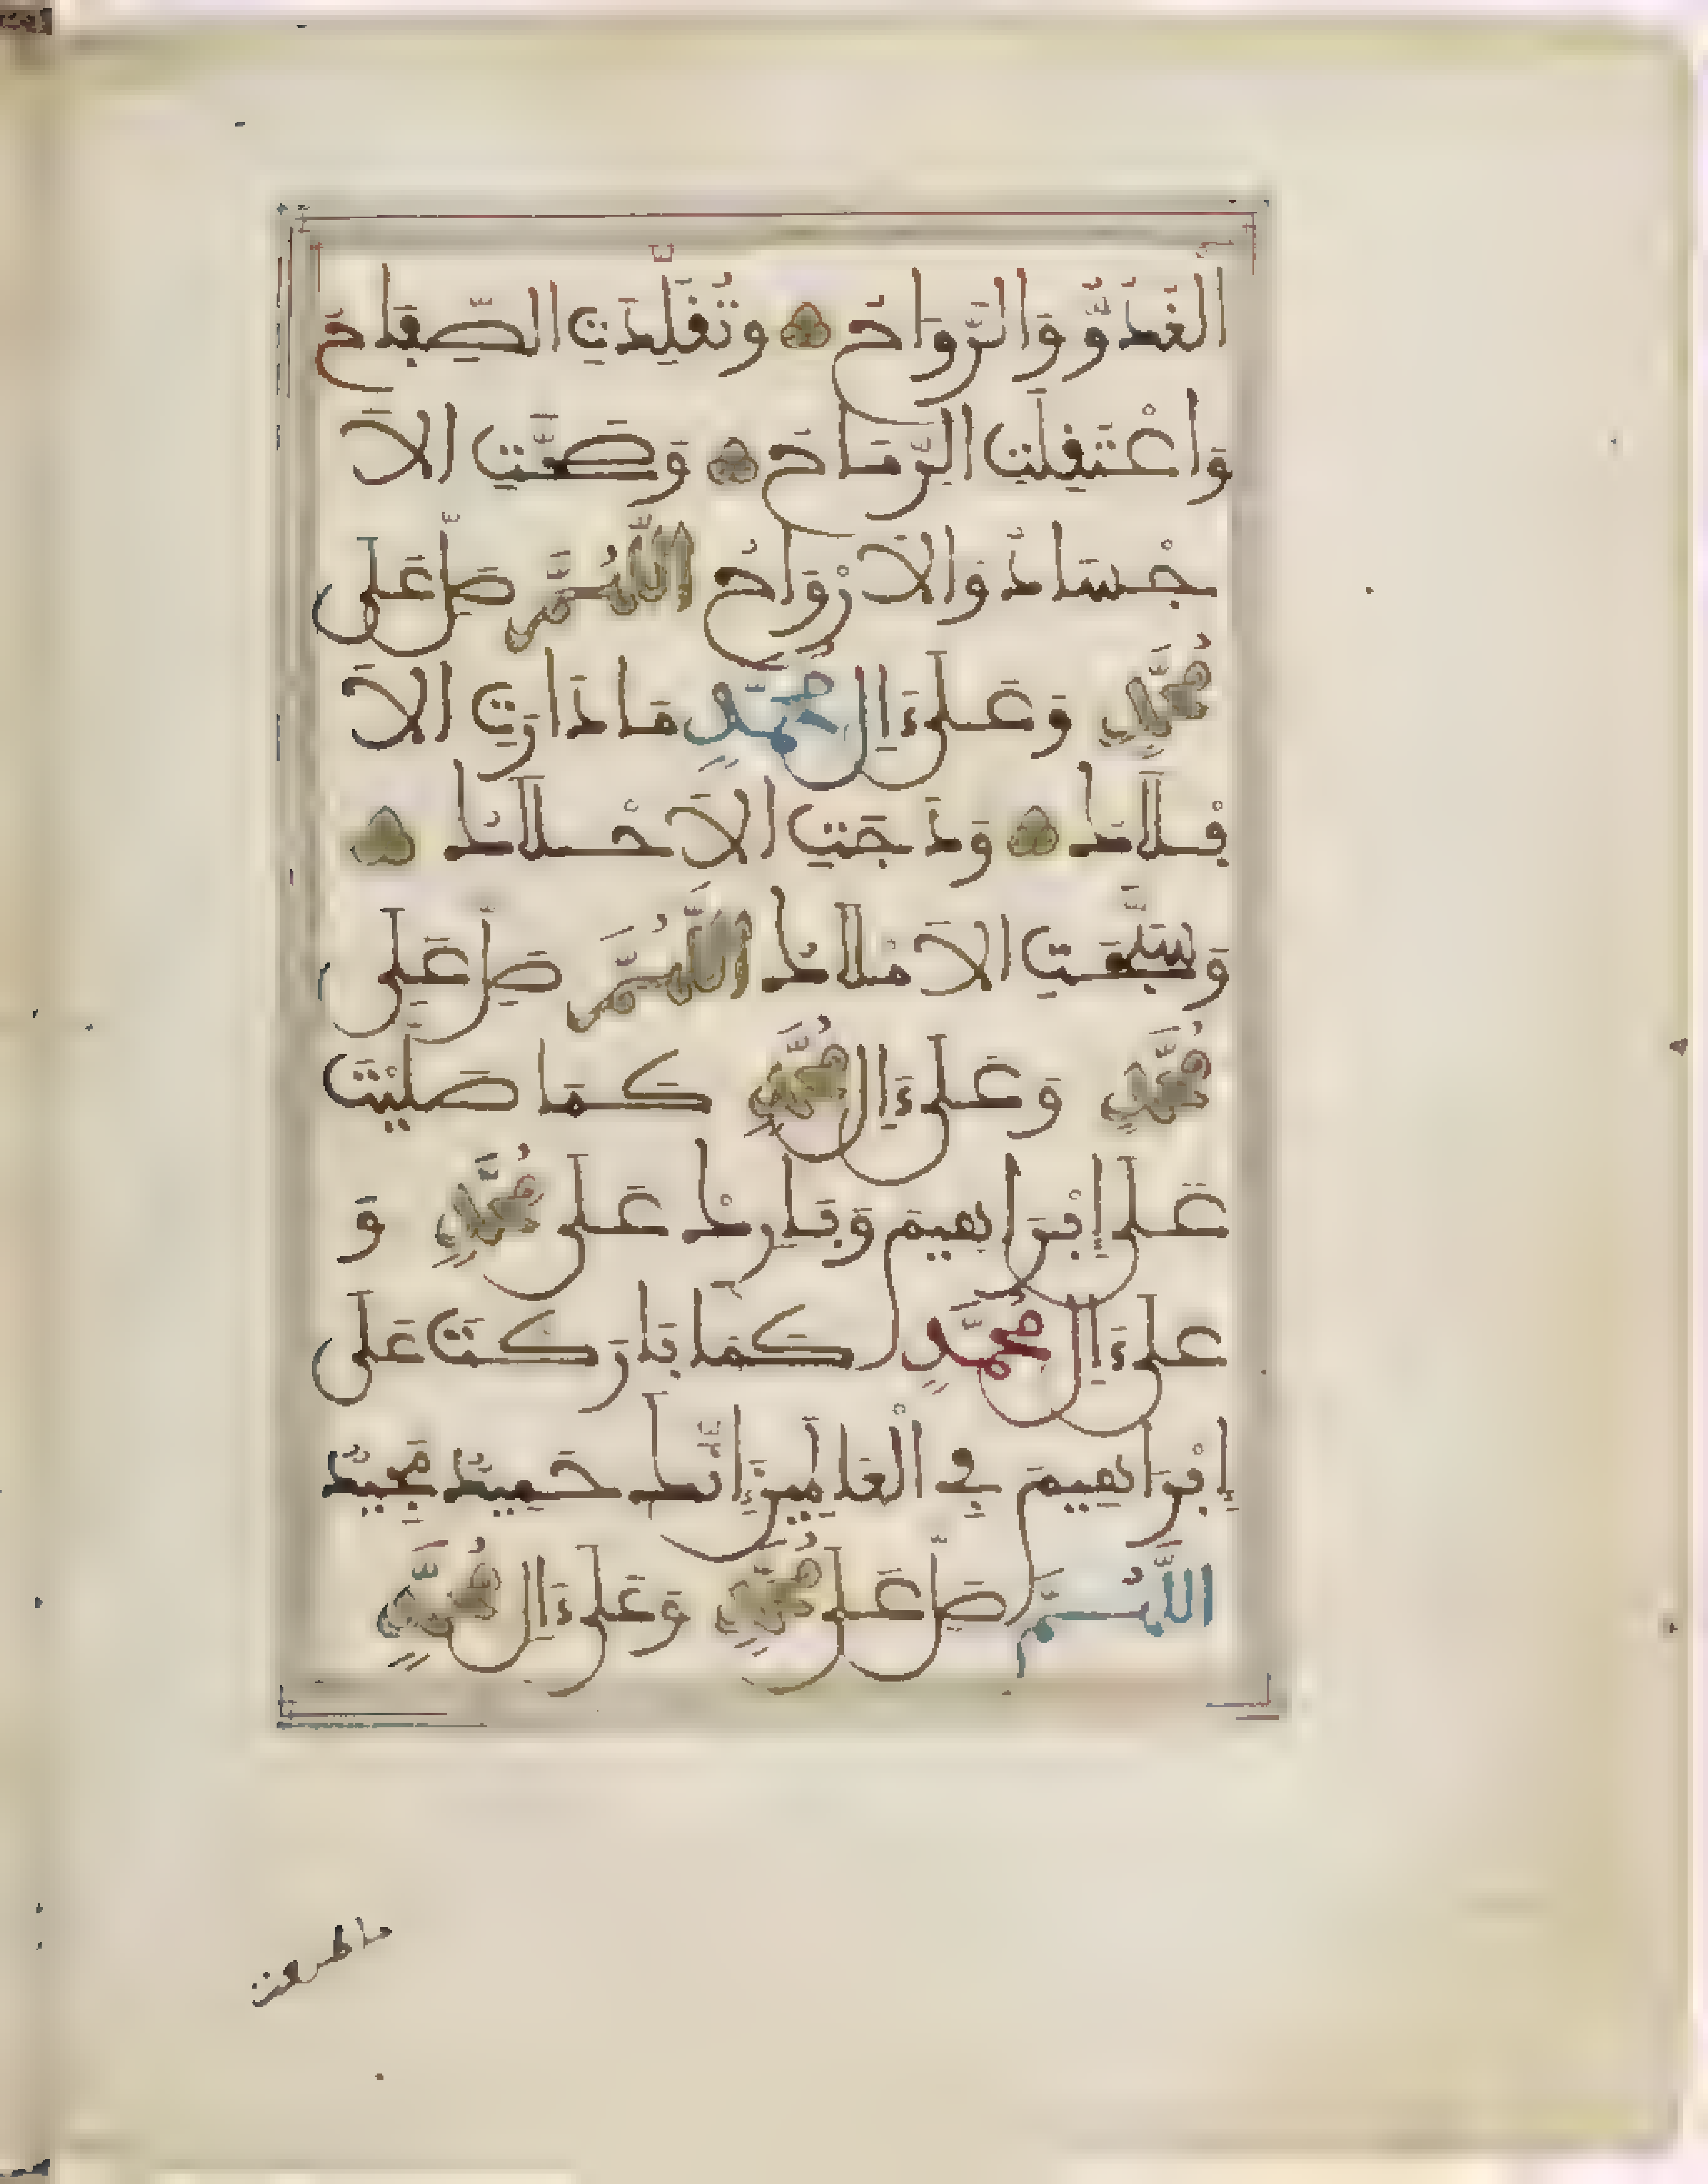 الْغُدُوُّ وَالرَّوَاحُ وَتُقُلِّدَتِ الصِّفَاحُ
وَاعْتُقِلَتِ الرِّمَاحُ وَصَحَّتِ الاَ
جْسَادُ وَالاَرْوَاحُ اللَّهُمَّ صَلِّ عَلَى
مُحَمَّدٍ وَعَلَى ءَالِ مُحَمَّدٍ مَا دَارَتِ الاَ
فْلَاكُ وَدَجَتِ الاَحْلَاكُ
وَسَبَّحَتِ الاَمْلَاكُ اللَّهُمَّ صَلِّ عَلَى
مُحَمَّدٍ وَعَلَى ءَالِ مُحَمَّدٍ كَمَا صَلَّيْتَ
عَلَى إِبْرَاهِيمَ وَبَارِكْ عَلَى مُحَمَّدٍ وَ
عَلَى ءَالِ مُحَمَّدٍ كَمَا بَارَكْتَ عَلَى
إِبْرَاهِيمَ فِي الْعَالَمِينَ إِنَّكَ حَمِيدٌ مَجِيدٌ
اللَّهُمَّ صَلِّ عَلَى مُحَمَّدٍ وَعَلَى ءَالِ مُحَمَّدٍ
ما طلعت